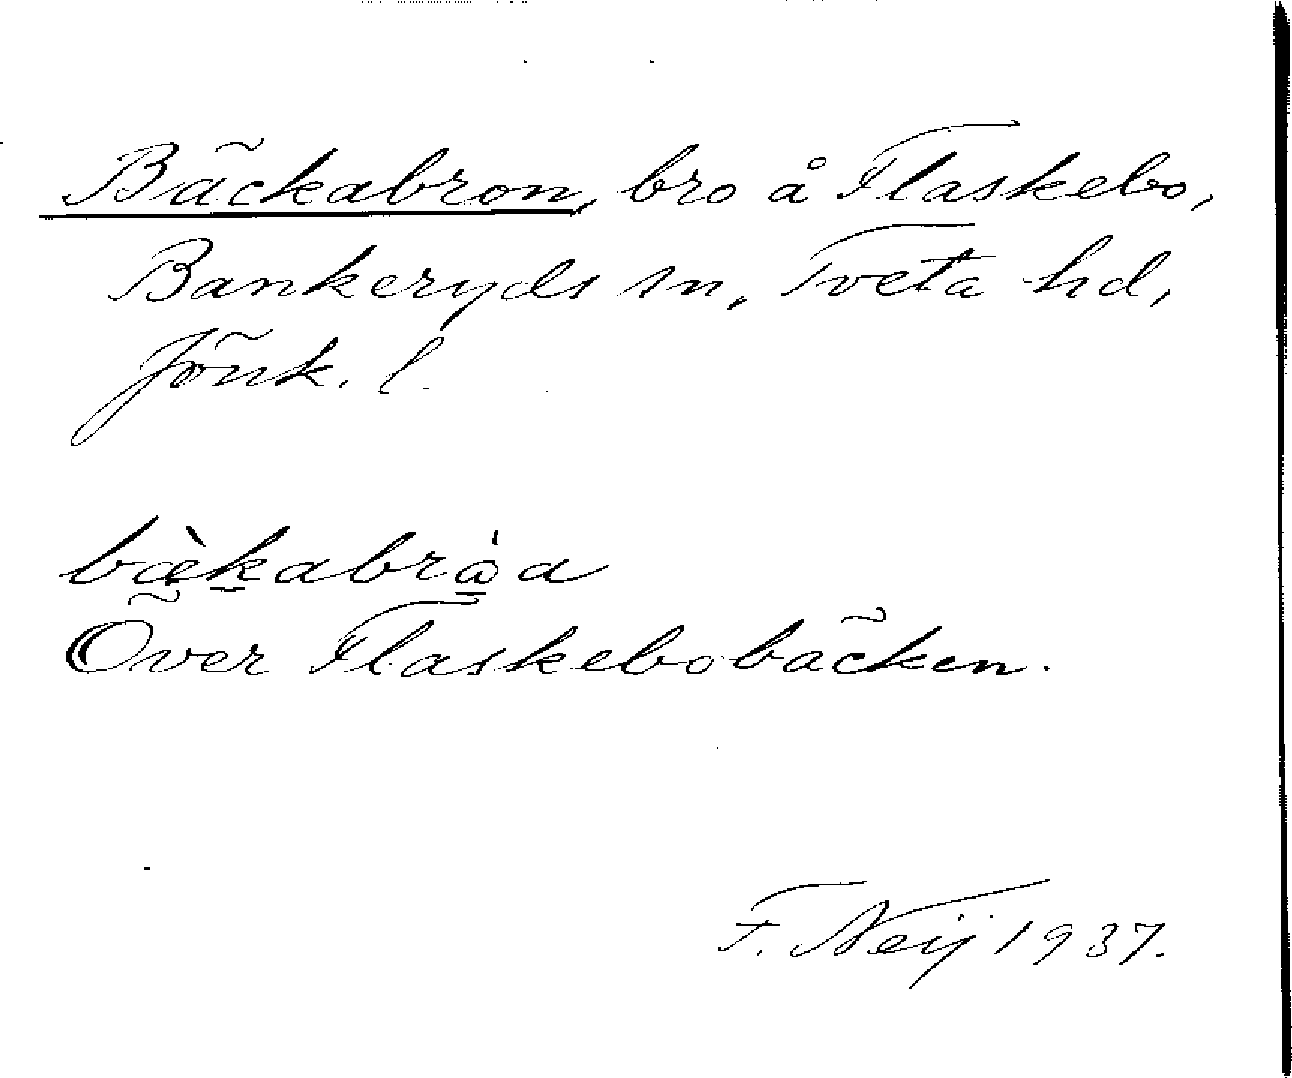 Bäckabron, bro å Flaskebo,
Bankeryds sn, Tveta hd,
Jönk. l.
bæ̀kabrå̀a
Över Flaskebobäcken.
F. Neij 1937.